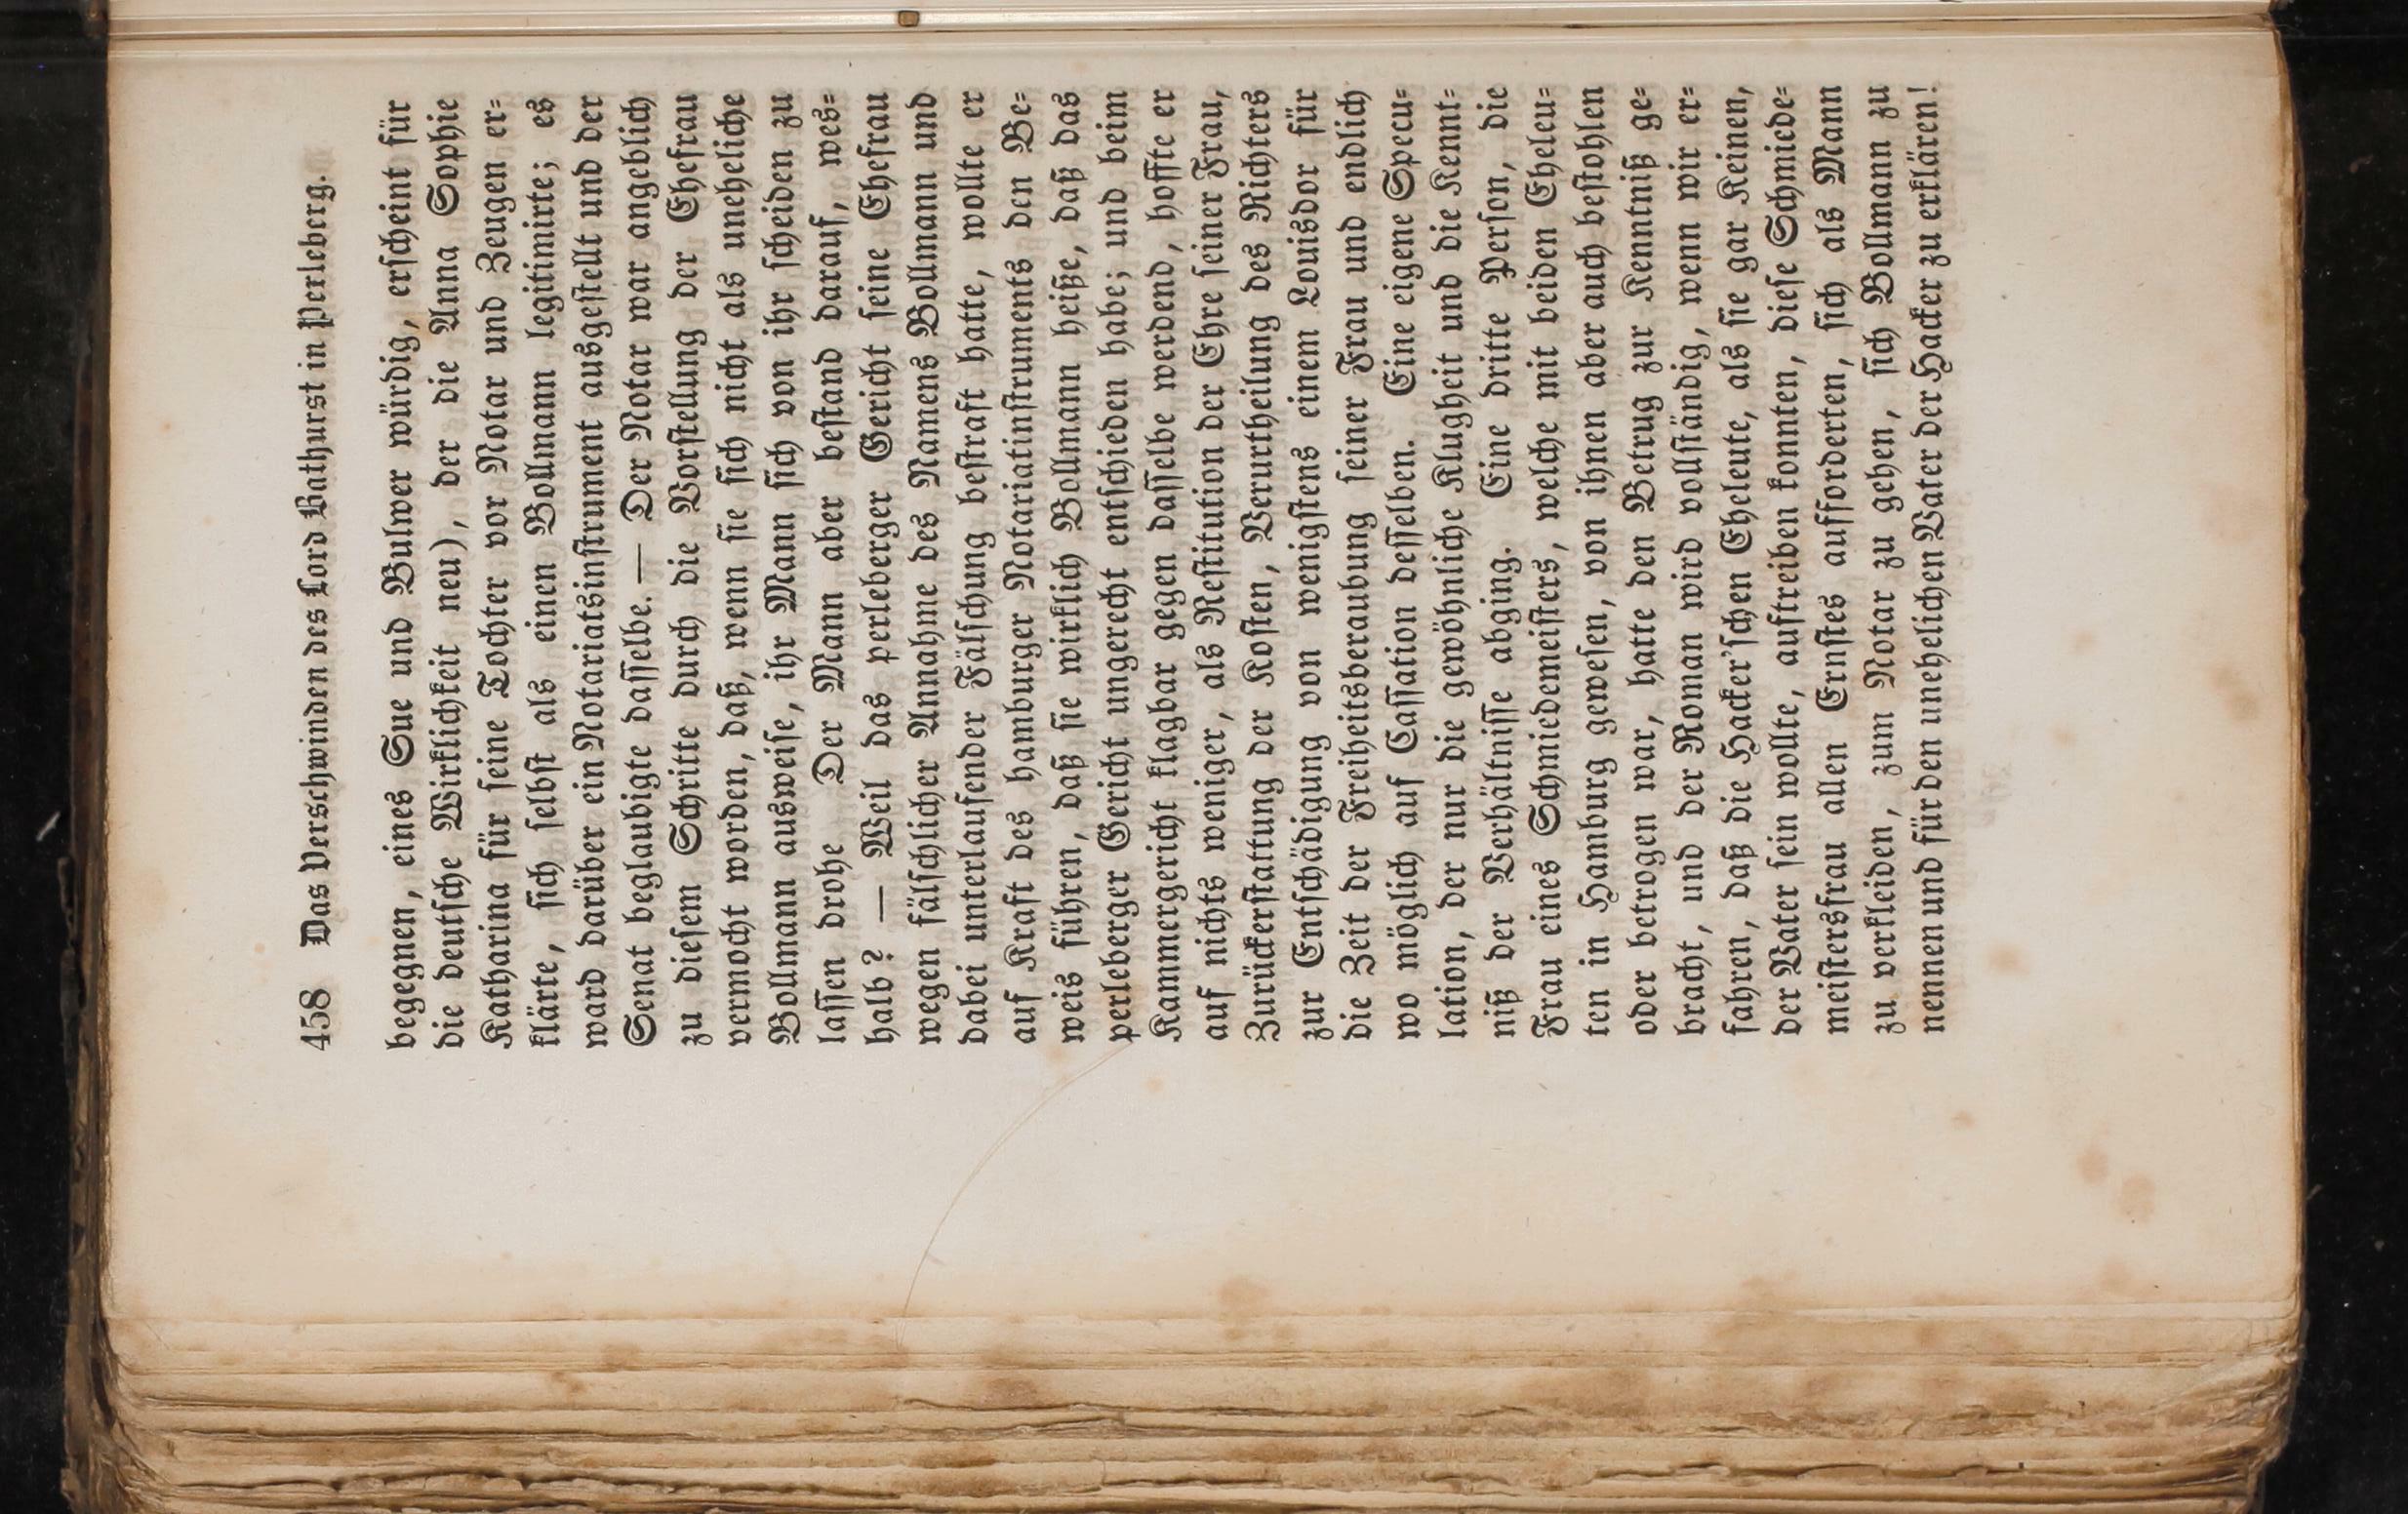 458 Das Verschwinden des Lord Bathurst in Perleberg.
begegnen, eines Sue und Bulwer würdig, erscheint für
die deutsche Wirklichkeit neu), der die Anna Sophie
Katharina für seine Tochter vor Notar und Zeugen er-
klärte, sich selbst als einen Bollmann legitimirte; es
ward darüber ein Notariatsinstrument ausgestellt und der
Senat beglaubigte dasselbe. — Der Notar war angeblich
zu diesem Schritte durch die Vorstellung der Ehefrau
vermocht worden, daß, wenn sie sich nicht als uneheliche
Bollmann ausweise, ihr Mann sich von ihr scheiden zu
lassen drohe. Der Mann aber bestand darauf, wes-
halb? — Weil das perleberger Gericht seine Ehefrau
wegen fälschlicher Annahme des Namens Bollmann und
dabei unterlaufender Fälschung bestraft hatte, wollte er
auf Kraft des hamburger Notariatinstruments den Be-
weis führen, daß sie wirklich Bollmann heiße, daß das
perleberger Gericht ungerecht entschieden habe; und beim
Kammergericht klagbar gegen dasselbe werdend, hoffte er
auf nichts weniger, als Restitution der Ehre seiner Frau,
Zurückerstattung der Kosten, Verurtheilung des Richters
zur Entschädigung von wenigstens einem Louisdor für
die Zeit der Freiheitsberaubung seiner Frau und endlich
wo möglich auf Cassation desselben. Eine eigene Specu-
lation, der nur die gewöhnliche Klugheit und die Kennt-
niß der Verhältnisse abging. Eine dritte Person, die
Frau eines Schmiedemeisters, welche mit beiden Eheleu-
ten in Hamburg gewesen, von ihnen aber auch bestohlen
oder betrogen war, hatte den Betrug zur Kenntniß ge-
bracht, und der Roman wird vollständig, wenn wir er-
fahren, daß die Hacker'schen Eheleute, als sie gar Keinen,
der Vater sein wollte, auftreiben konnten, diese Schmiede-
meistersfrau allen Ernstes aufforderten, sich als Mann
zu verkleiden, zum Notar zu gehen, sich Bollmann zu
nennen und für den unehelichen Vater der Hacker zu erklären!